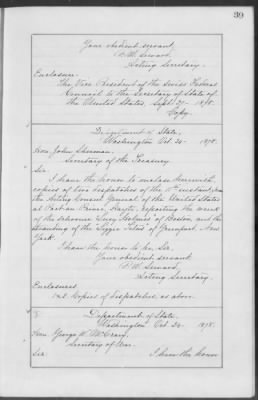 39
Your obedient servant,
F. W. Seward,
Acting Secretary.
Enclosure:
The Vice President of the Swiss Federal
Council to the Secretary of State of
the United States, Sept. 27- 1878.
Copy.
Department of State,
Washington Oct. 24- 1878.
Hon. John Sherman,
Secretary of the Treasury.
Sir:
I have the honor to enclose herewith,
copies of two despatches of the instant, from
the Acting Consul General of the United States
at Port-au-Prince, Hayti, reporting the wreck
of the schooner Lucy Holmes of Boston, and the
stranding of the Lizzie of Greenport, New
York.
I have the honor to be, Sir,
Your obedient servant
F. W. Seward,
Acting Secretary.
Enclosures
1 & 2. Copies of despatches, as above.
Department of State,
Washington Oct. 24- 1878.
Hon. George W. McCrary,
Secretary of War.
Sir: I have the honor